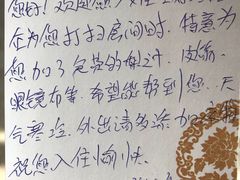 您好！欢迎您入住
在为您打扫房间时，特意为
您加了免费的
眼镜布等，希望能帮到您，天
气寒冷，外出请多添加衣物
祝您入住愉快。